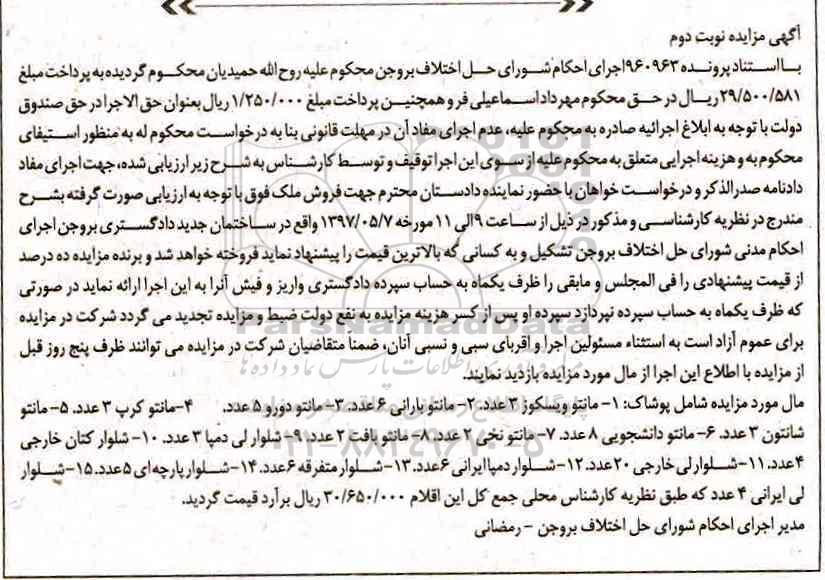 آگهی مزایده نوبت دوم
بااستناد پرونده ۹۶۰۹۶۳اجرای احکام شورای حل اختلاف بروجن محکوم علیه روح الله حمیدیان محکوم گردیده به پرداخت مبلغ
۲۹/۵۰۰/۵۸۱ ریال در حق محکوم مهرداد اسماعیلی فر و همچنین پرداخت مبلغ ۱/۲۵۰/۰۰۰ ریال بعنوان حق الاجرا در حق صندوق
دولت با توجه به ابلاغ اجرائیه صادره به محکوم علیه، عدم اجرای مفاد آن در مهلت قانونی بنا به درخواست محکوم له به منظور استیفای
محکوم به و هزینه اجرایی متعلق به محکوم علیه از سوی این اجرا توقیف و توسط کارشناس به شرح زیر ارزیابی شده، جهت اجرای مفاد
دادنامه صدرالذکر و درخواست خواهان با حضور نماینده دادستان محترم جهت فروش ملک فوق با توجه به ارزیابی صورت گرفته بشرح
مندرج در نظریه کارشناسی و مذکور در ذیل از ساعت ۹ الی ۱۱ مورخه ۱۳۹۷/۰۵/۷ واقع در ساختمان جدید دادگستری بروجن اجرای
احکام مدنی شورای حل اختلاف بروجن تشکیل و به کسانی که بالاترین قیمت را پیشنهاد نماید فروخته خواهد شد و برنده مزایده ده درصد
از قیمت پیشنهادی را فی المجلس و مابقی را ظرف یکماه به حساب سپرده دادگستری واریز و فیش آنرا به این اجرا ارائه نماید در صورتی
که ظرف یکماه به حساب سپرده نپردازد سپرده او پس از کسر هزینه مزایده به نفع دولت ضبط و مزایده تجدید می گردد شرکت در مزایده
برای عموم آزاد است به استثناء مسئولین اجرا و اقربای سببی و نسبی آنان، ضمنا متقاضیان شرکت در مزایده می توانند ظرف پنج روز قبل
از مزایده با اطلاع این اجرا از مال مورد مزایده بازدید نمایند.
مال مورد مزایده شامل پوشاک: ۱- مانتو ویسکوز ۳ عدد. ۲- مانتو بارانی ۶ عدد. ۳- مانتو دورو ۵ عدد. ۴-مانتو کرپ ۳ عدد. ۵- مانتو
شانتون ۳ عدد. ۶- مانتو دانشجویی ۸ عدد. ۷- مانتو نخی ۲ عدد. ۸- مانتو بافت ۲ عدد. ۹- شلوار لی دمپا ۳ عدد. ۱۰- شلوار کتان خارجی
۴ عدد. ۱۱- شلوار لی خارجی ۲۰ عدد. ۱۲- شلوار دمپا ایرانی ۶ عدد. ۱۳- شلوار متفرقه ۶ عدد. ۱۴- شلوار پارچه ای ۵ عدد. ۱۵- شلوار
لی ایرانی ۴ عدد که طبق نظریه کارشناس محلی جمع کل این اقلام ۳۰/۶۵۰/۰۰۰ ریال برآرد قیمت گردید.
مدیر اجرای احکام شورای حل اختلاف بروجن - رمضانی
ParsNamadData